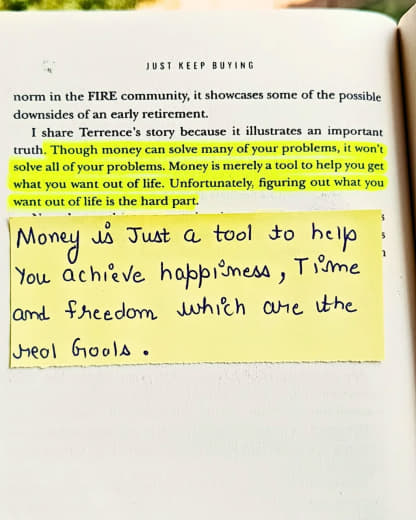 JUST KEEP BUYING
norm in the FIRE community, it showcases some of the possible
downsides of an early retirement.
I share Terrence's story because it illustrates an important
truth. Though money can solve many of your problems, it won't
solve all of your problems. Money is merely a tool to help you get
what you want out of life. Unfortunately, figuring out what you
want out of life is the hard part.
Money is Just a tool to help
You achieve happiness, Time
and freedom which are the
real Goals.